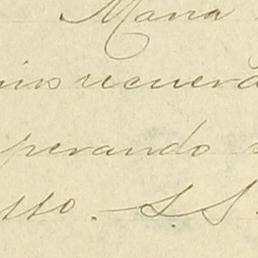 Maria
mis recuerd
perando s
tto. S.S.